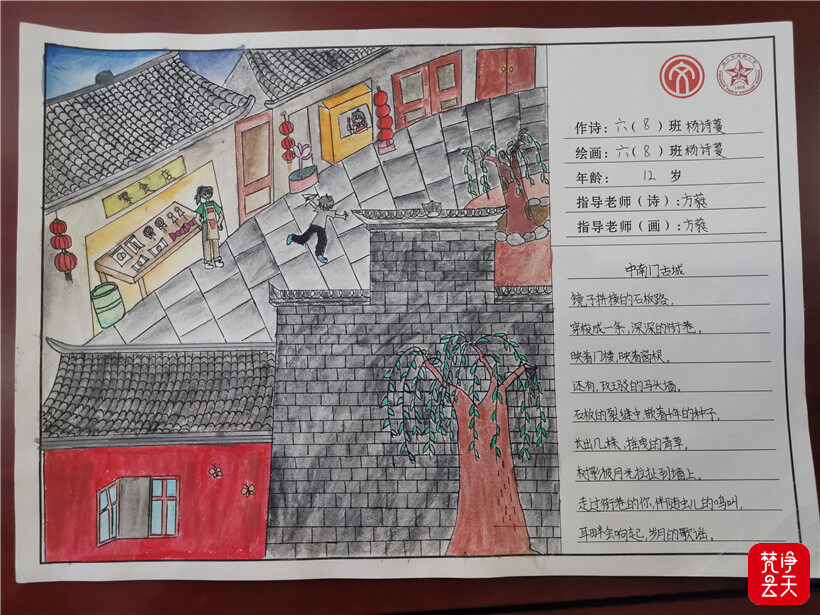 零食店
作诗：六（8）班 杨诗蔓
绘画：六（8）班 杨诗蔓
年龄： 12 岁
指导老师（诗）：方蕤
指导老师（画）：方蕤
中南门古城
镜子拼接的石板路，
穿梭成一条，深深的街巷，
映着门楼，映着窗棂，
还有，斑驳的马头墙，
石板的裂缝中散着年的种子，
长出几株，摇曳的青草，
树影被月光拉扯到墙上，
走过街巷的你，伴随虫儿的鸣叫，
耳畔会响起，岁月的歌谣。
梵净
云天